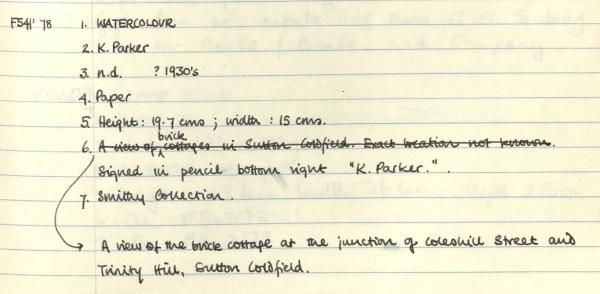 F541'78 1. WATERCOLOUR
2. K. Parker
3. n.d. ? 1930's
4. Paper
5. Height: 19.7 cms ; width : 15 cms.
6. A view of brick cottages in Sutton Coldfield. Exact location not known.
Signed in pencil bottom right "K. Parker.".
7. Smithy Collection.
A view of the brick cottage at the junction of Coleshill Street and
Trinity Hill, Sutton Coldfield.